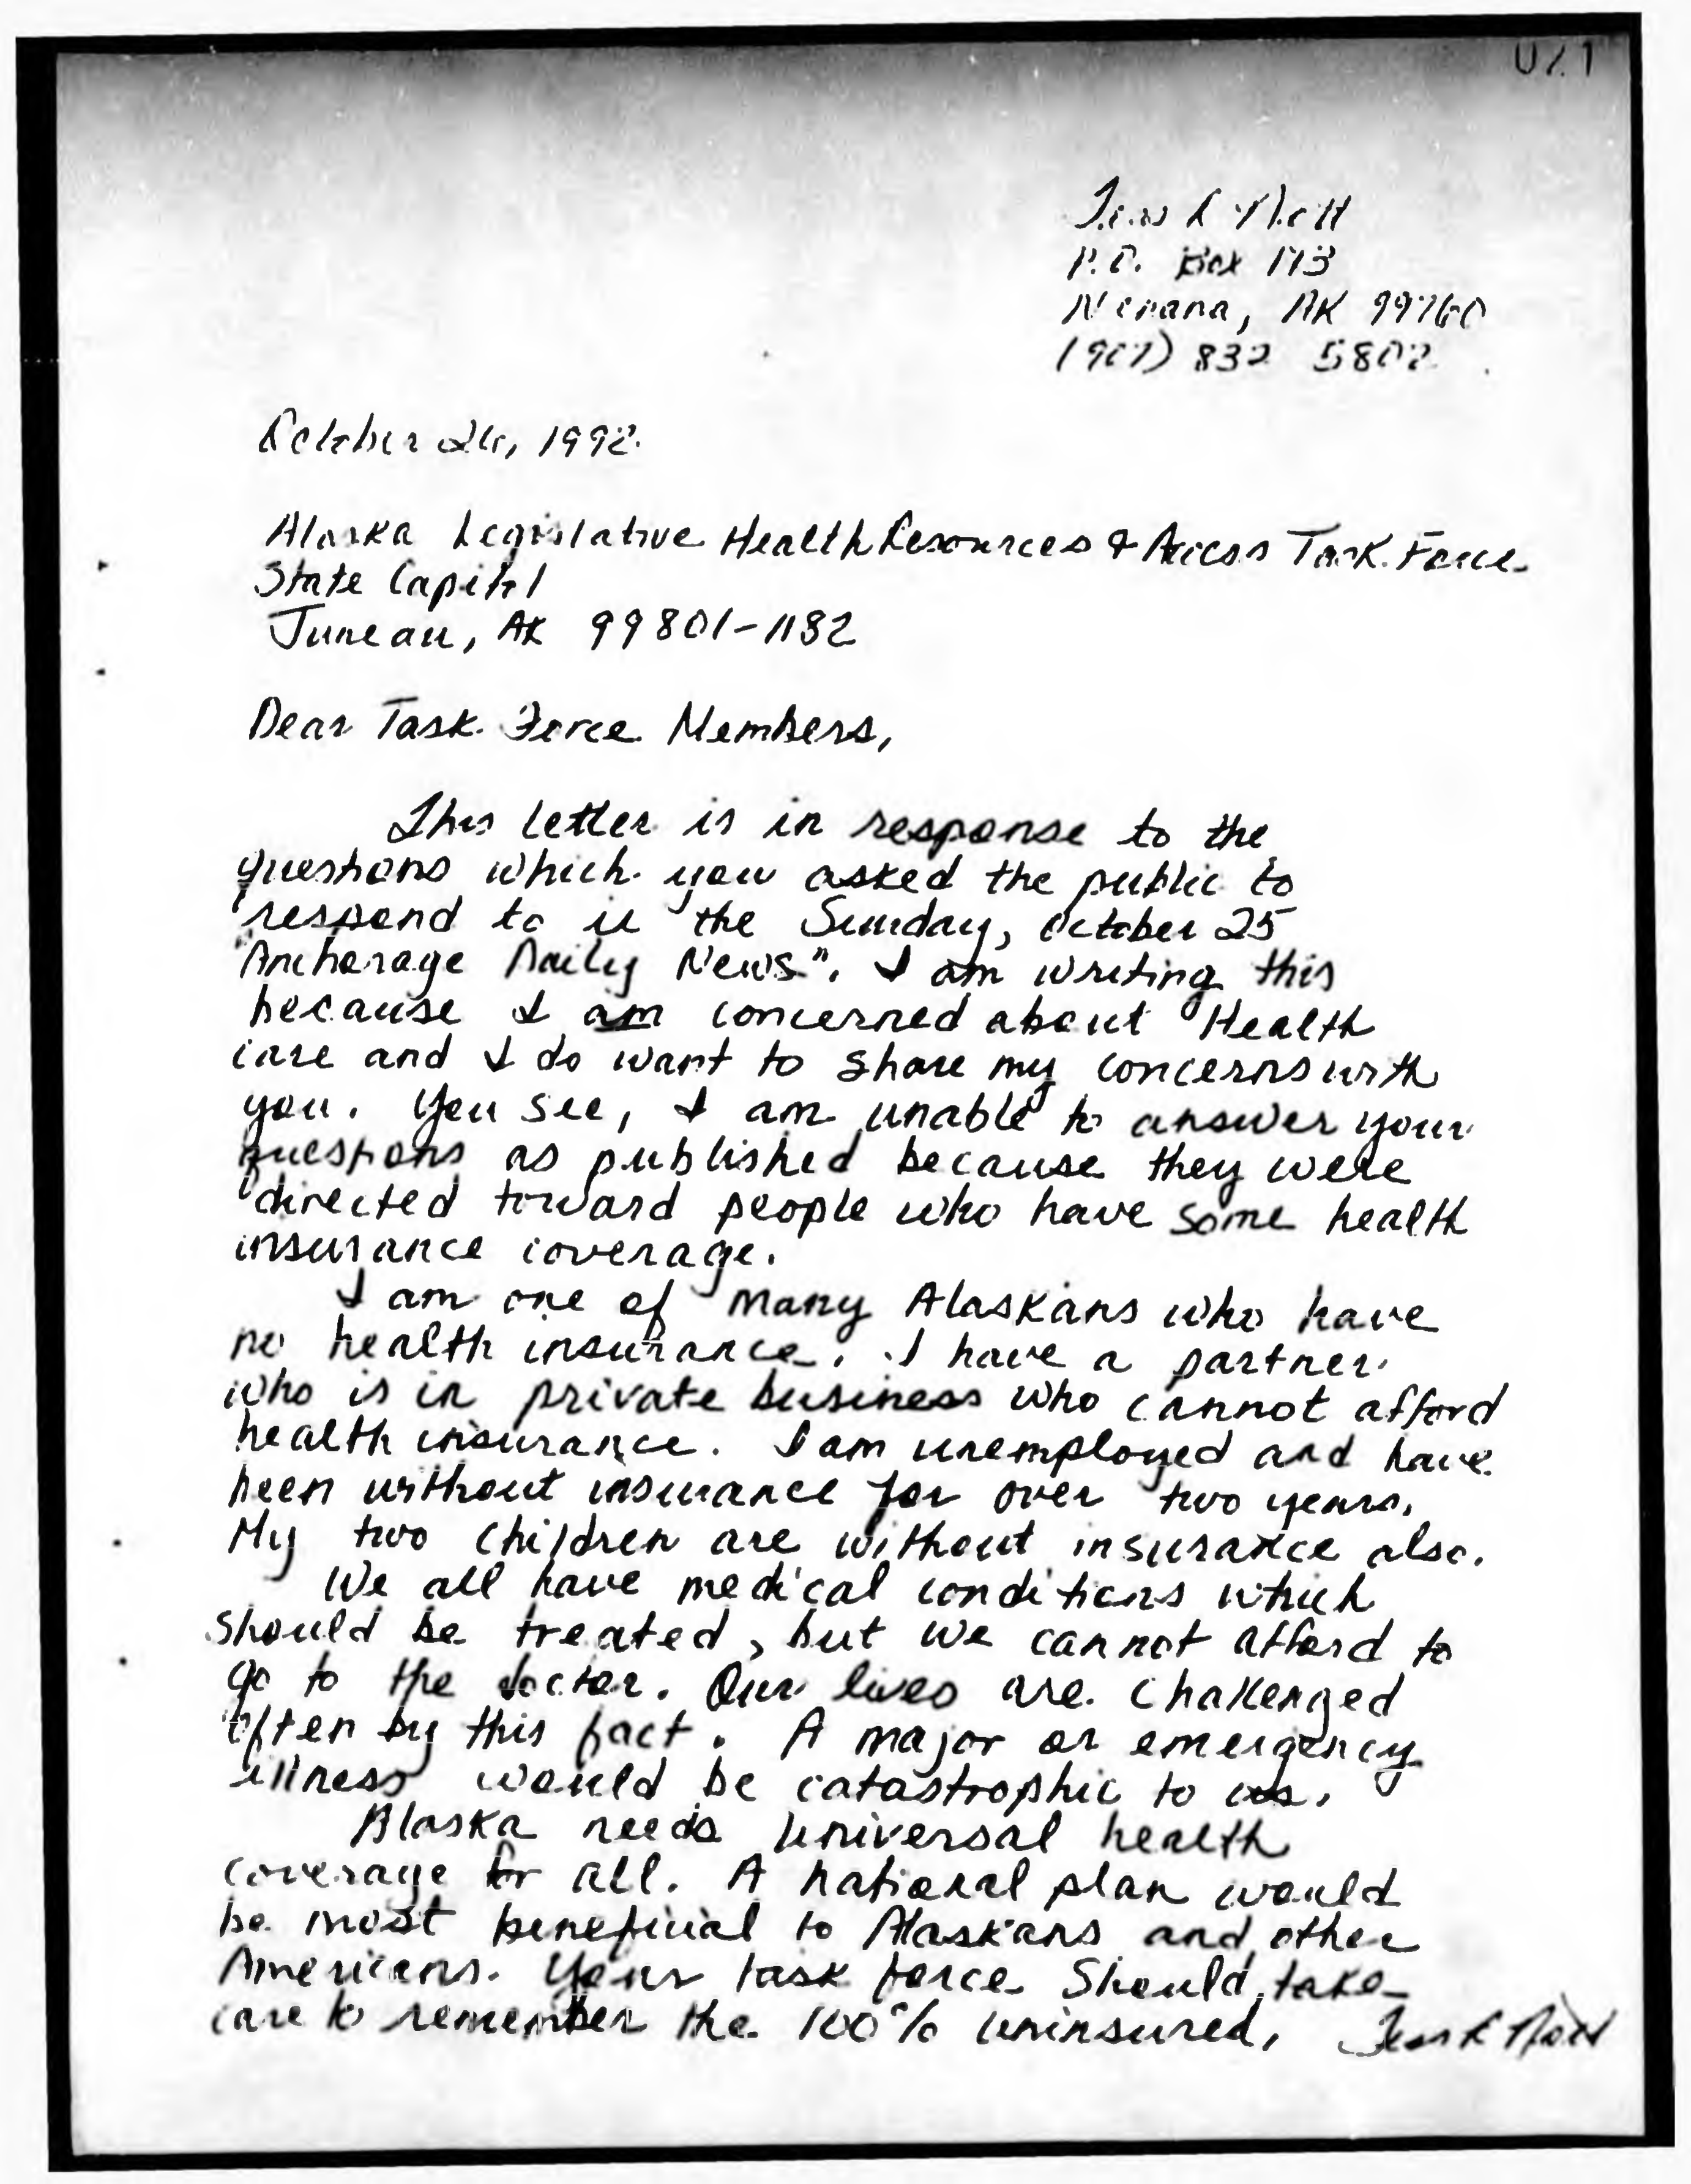 P.O. Box 173
Nenana, AK 99760
(907) 832 5802
October 26, 1992
Alaska Legislative Health Resources & Access Task Force
State Capitol
Juneau, AK 99801-1182
Dear Task Force Members,
This letter is in response to the
questions which you asked the public to
respond to in the Sunday, October 25
"Anchorage Daily News". I am writing this
because I am concerned about Health
care and I do want to share my concerns with
you. You see, I am unable to answer your
questions as published because they were
directed toward people who have some health
insurance coverage.
I am one of many Alaskans who have
no health insurance. I have a partner
who is in private business who cannot afford
health insurance. I am unemployed and have
been without insurance for over two years.
My two children are without insurance also.
We all have medical conditions which
should be treated, but we cannot afford to
go to the doctor. Our lives are challenged
often by this fact. A major or emergency
illness would be catastrophic to us.
Alaska needs universal health
coverage for all. A national plan would
be most beneficial to Alaskans and other
Americans. Your task force should take
care to remember the 100% uninsured,